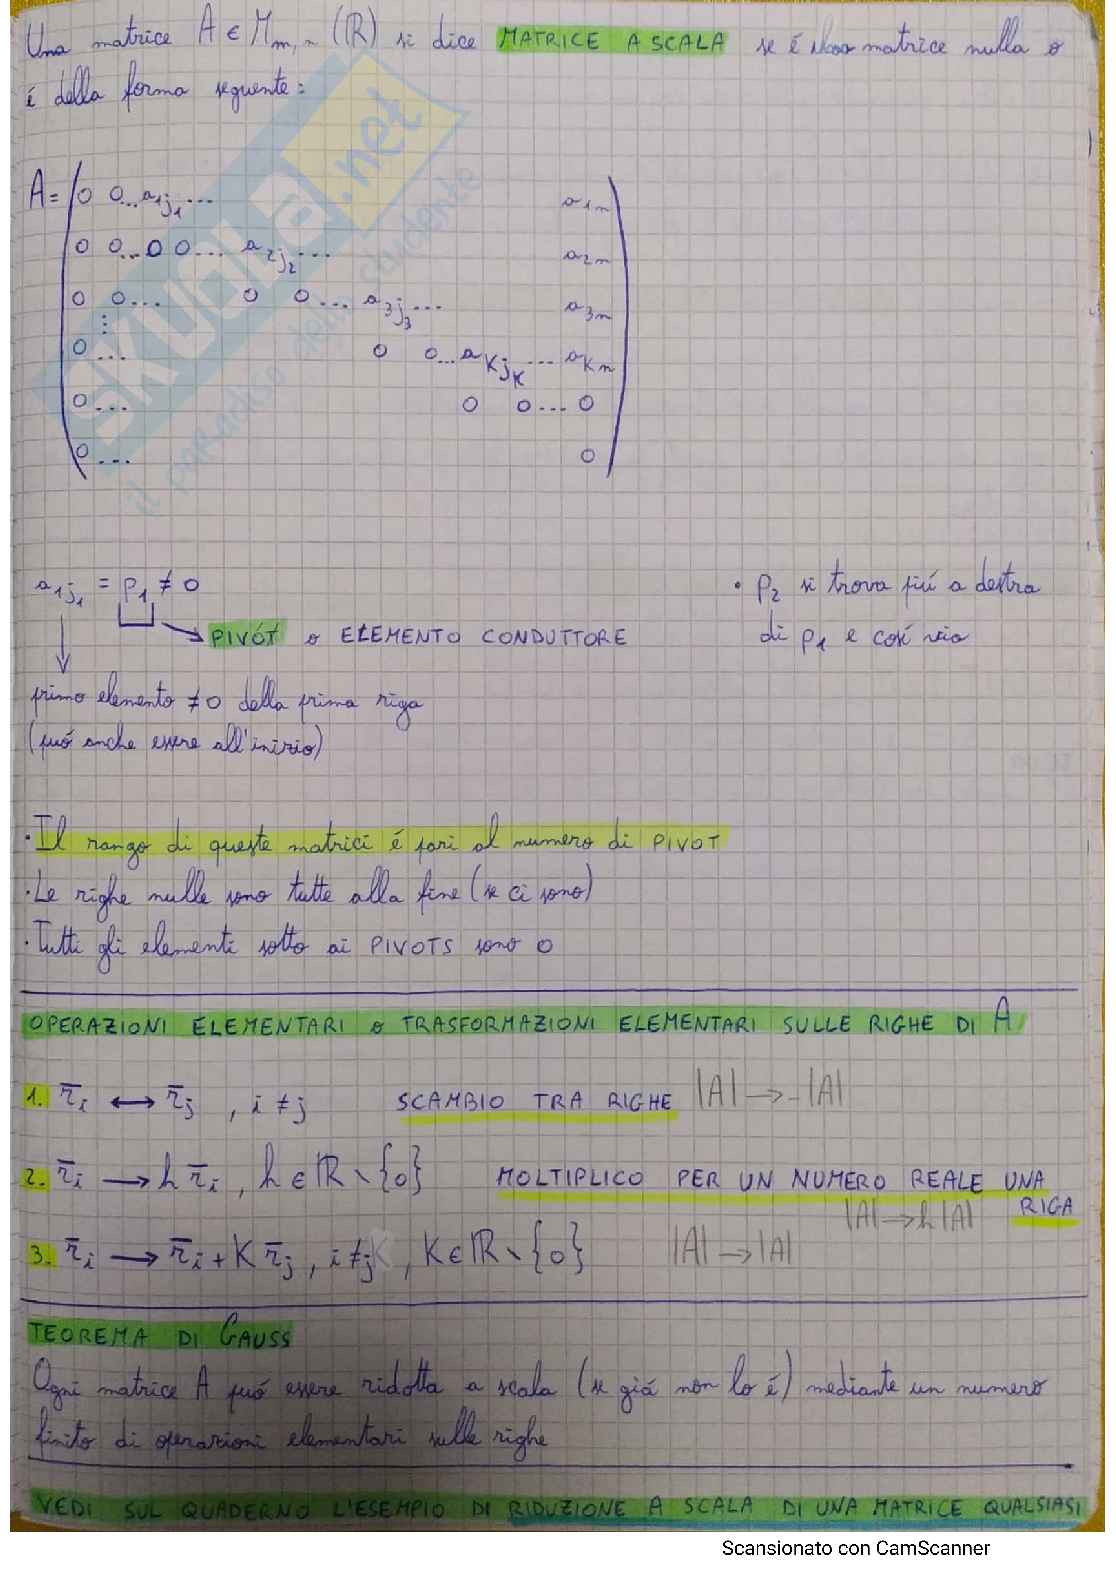 Una matrice A ∈ M_{m,n} (ℝ) si dice MATRICE A SCALA se é matrice nulla o
é della forma seguente:
A = ( 0 0... a_{1j_1} ... a_{1n}
0 0...0 0... a_{2j_2} ... a_{2n}
0 0... 0 0... a_{3j_3} ... a_{3n}
⋮
0... 0 0... a_{Kj_K} ... a_{Kn}
0... 0 0... 0
0.... 0 )
a_{1j_1} = p_1 ≠ 0
→ PIVOT o ELEMENTO CONDUTTORE
↓
primo elemento ≠0 della prima riga
(puó anche essere all'inizio)
• p_2 si trova piú a destra
di p_1 e cosí via
· Il rango di queste matrici é pari al numero di PIVOT
· Le righe nulle sono tutte alla fine (se ci sono)
· Tutti gli elementi sotto ai PIVOTS sono 0
OPERAZIONI ELEMENTARI o TRASFORMAZIONI ELEMENTARI SULLE RIGHE DI A
1. r̄_i ↔ r̄_j , i ≠ j SCAMBIO TRA RIGHE |A| → -|A|
2. r̄_i → h r̄_i , h ∈ ℝ \ {0} MOLTIPLICO PER UN NUMERO REALE UNA
RIGA
|A| → h|A|
3. r̄_i → r̄_i + K r̄_j , i ≠ j , K ∈ ℝ \ {0} |A| → |A|
TEOREMA DI GAUSS
Ogni matrice A puó essere ridotta a scala (se giá non lo é) mediante un numero
finito di operazioni elementari sulle righe
VEDI SUL QUADERNO L'ESEMPIO DI RIDUZIONE A SCALA DI UNA MATRICE QUALSIASI
SKUOLA.net
il paradiso dello studente
Scansionato con CamScanner